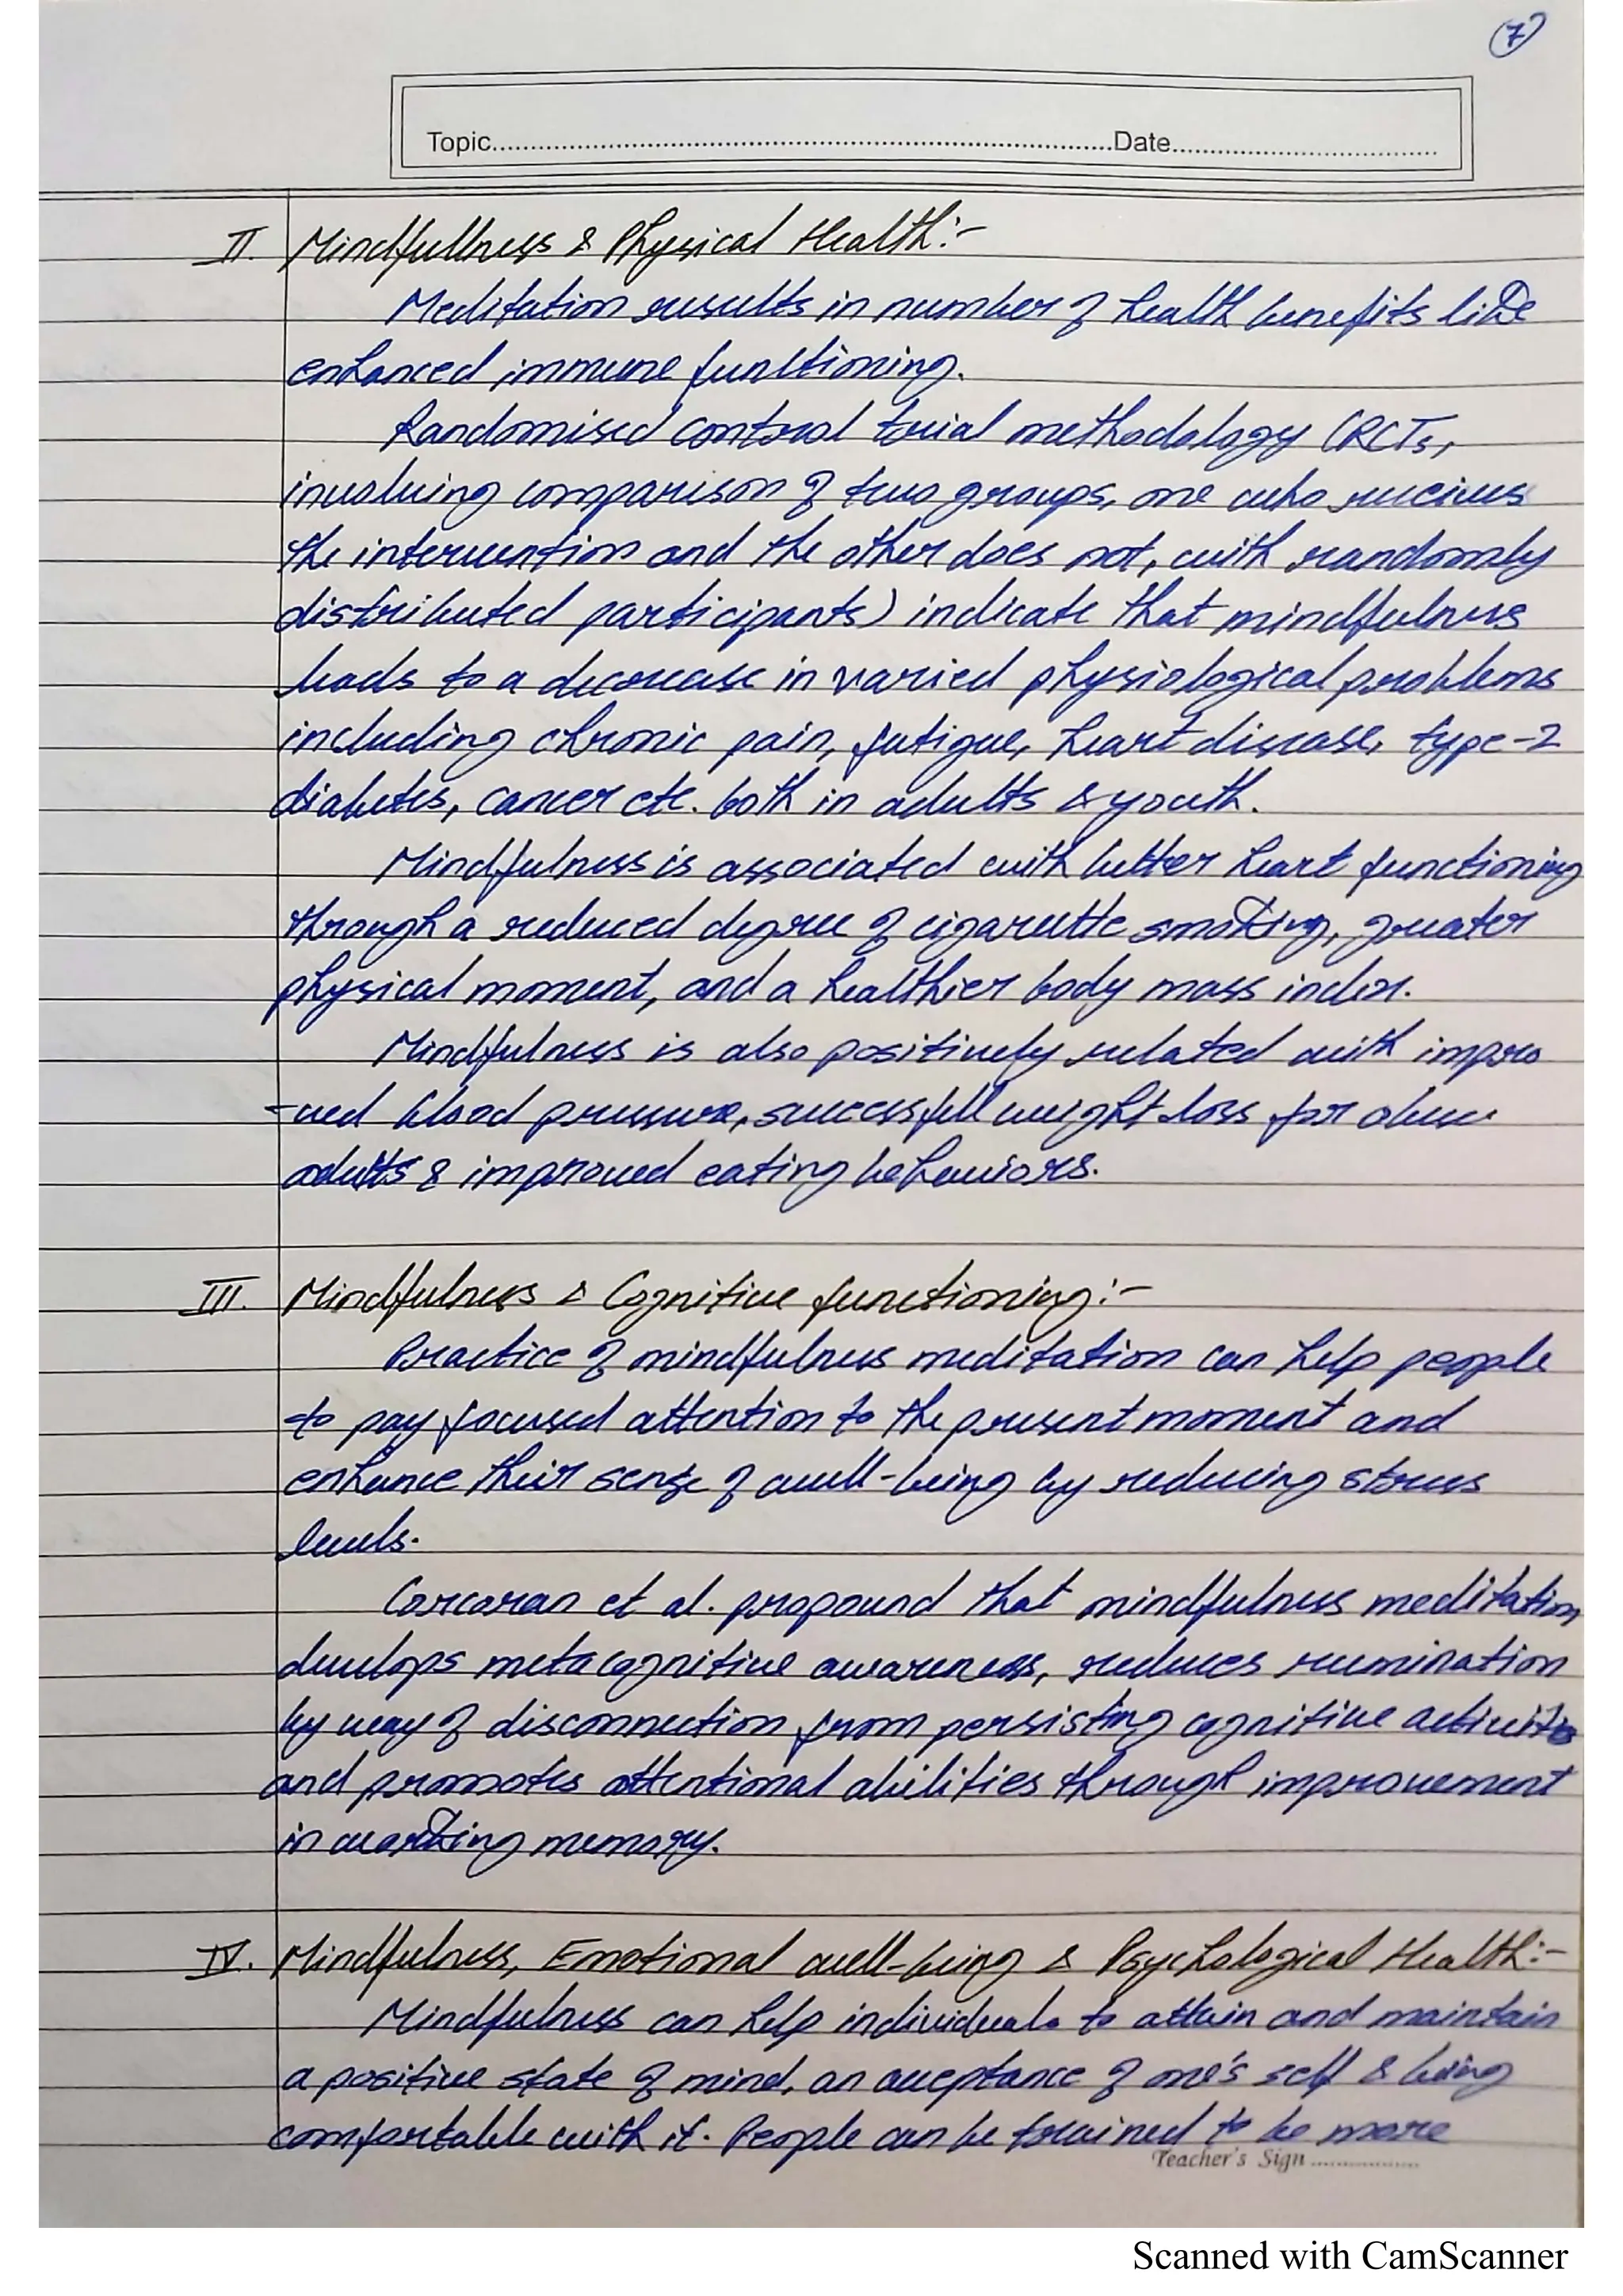 7
Topic.................................................Date.....................
II. Mindfullness & Physical Health:-
Meditation results in number of health benefits like
enhanced immune functioning.
Randomised control trial methodology (RCTs,
involving comparison of two groups, one who recieves
the intervention and the other does not, with randomly
distributed participants) indicate that mindfulness
leads to a decrease in varied physiological problems
including chronic pain, fatigue, heart disease, type-2
diabetes, cancer etc. both in adults & youth.
Mindfulness is associated with better heart functioning
through a reduced degree of cigarette smoking, greater
physical moment, and a healthier body mass index.
Mindfulness is also positively related with impro
-ved blood pressure, successfull weight loss for obese
adults & improved eating behaviors.
III. Mindfulness & Cognitive functioning:-
Practice of mindfulness meditation can help people
to pay focused attention to the present moment and
enhance their sense of well-being by reducing stress
levels.
Corcoran et al. propound that mindfulness meditation
develops metacognitive awareness, reduces rumination
by way of disconnection from persisting cognitive activities
and promotes attentional abilities through improvement
in working memory.
IV. Mindfulness, Emotional well-being & Psychological Health:-
Mindfulness can help individuals to attain and maintain
a positive state of mind, an acceptance of one's self & being
comfortable with it. People can be trained to be more
Teacher's Sign ................
Scanned with CamScanner